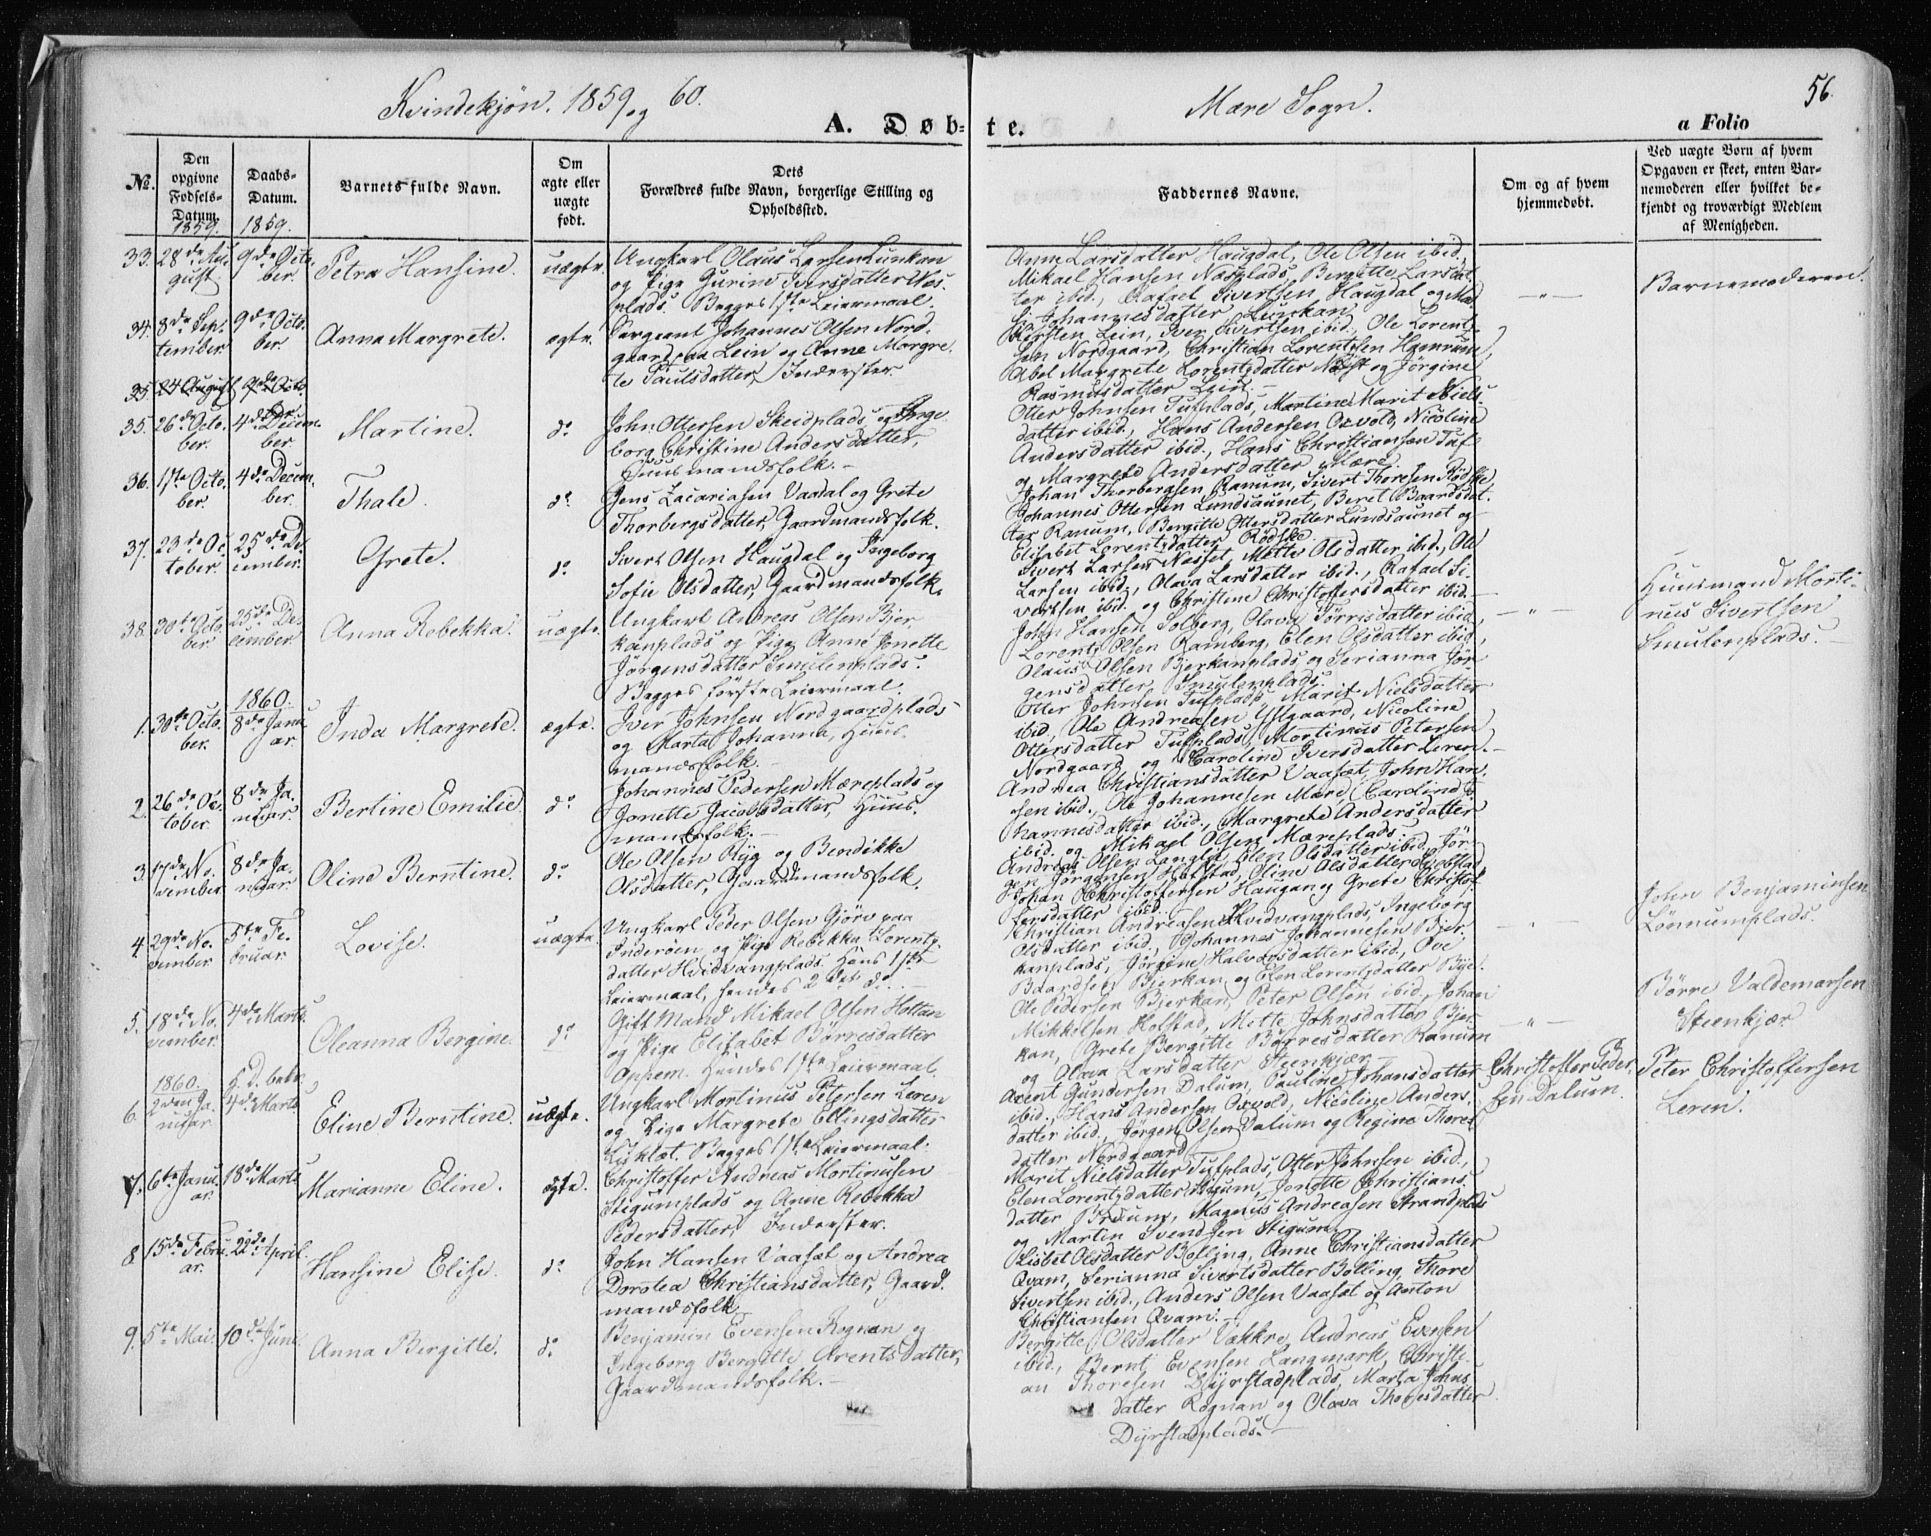 Kvindekjøn. 1859 og 60.
Mære Sogn.
56.
A. Døb-
te.
a Folio
No.
Den opgivne Fødsels-Datum.
Daabs-Datum.
Barnets fulde Navn.
Om ægte eller uægte født.
Dets Forældres fulde Navn, borgerlige Stilling og Opholdssted.
Faddernes Navne.
Om og af hvem hjemmedøbt.
Ved uægte Børn af hvem Opgaven er skeet, enten Barnemoderen eller hvilket bekjendt og troværdigt Medlem af Menigheden.
1859. 1859.
33. 28de Au- 9de Octo- Petra Hansine. uægte. Ungkarl Olaus Larsen Lunkan
gust. ber. og Pige Gurine Iversdatter Næs-
plads. Begges 1ste Leiermaal.
Anne Larsdatter Haugdal, Ole Olsen ibid.,
Mikael Hansen Næsplads, Bergitte Larsdat-
ter ibid., Rafael Sivertsen Haugdal og Ma-
Johannesdatter Lunkan.
–„–
Barnemoderen.
34. 8de Sept- 9de Octo- Anna Margrete. ægte. Sergeant Johannes Olsen Nord-
tember. ber. gaard paa Lein og Anne Margre-
te Paulsdatter, Inderster.
Lein, Iver Sivertsen ibid., Ole Lorent-
sen Nordgaard, Christian Lorentsen Hamrum,
Abel Margrete Lorentsdatter og Jørgine
Rasmusdatter Lein.–
35. 24 August 9de Octo-
35. 26de Octo- 4de Decem- Martine. do John Ottersen Skeidplads og Inge-
ber. ber borg Christine Andersdatter,
Huusmandsfolk.–
Otter Johnsen Tufplads, Martine Marit Niels-
datter ibid., Hans Andersen Oxvold, Nicoline
Andersdatter ibid., Hans Christiansen Tuf-
og Margrete Andersdatter Mære.
36. 17de Octo- 4de Decem- Thale. do Jens Zacariasen Vaadal og Grete
ber. ber. Thorbergsdatter, Gaardmandsfolk.
Johan Thorbergsen Ranum, Sivert Thoresen Rødske,
Johannes Ottersen Lundsaunet, Beret Baardsdat-
ter Ranum, Bergitte Ottersdatter Lundsaunet og
Elisabet Lorentsdatter Rødske.
37. 23de Oc- 25de De- Grete. do Sivert Olsen Haugdal og Ingeborg
tober. cember. Sofie Olsdatter, Gaardmandsfolk.
Sivert Larsen Næsset, Mette Olsdatter ibid., Ole
Larsen ibid., Olava Larsdatter ibid., Rafael Si-
vertsen ibid. og Christine Christoffersdatter ibid.–
38. 30te Octo- 25de De- Anna Rebekka. uægte. Ungkarl Andreas Olsen Bjer-
ber. cember. kanplads og Pige Anne Jonette
Jørgensdatter Smulenplads.
Begges første Leiermaal.
John Hansen Solberg, Olava Tørrisdatter ibid.,
Lorents Olsen Ramberg, Elen Olsdatter ibid.,
Olaus Olsen Bjerkanplads og Serianna Jør-
gensdatter Smulenplads.
–„–
Huusmand Morti-
nus Sivertsen
Smulenplads.–
1860.
1. 30te Octo- 8de Janu- Inda Margrete. ægte. Iver Johnsen Nordgaardplads
ber. ar. og Marta Johanna, Huus-
mandsfolk.–
Otter Johnsen Tufplads, Marit Nielsdatter
ibid., Ole Andreasen Ystgaard, Nicoline
Ottersdatter Tufplads, Mortinus Petersen
Nordgaard og Caroline Iversdatter Leren.–
2. 26de Oc- 8de Ja- Bertine Emilie. do Johannes Pedersen Mæreplads og
tober. nuar. Jonette Jacobsdatter, Huus-
mandsfolk.–
Andrea Christiansdatter Vaasæt, John Han-
sen ibid., Ole Johannesen Mære, Caroline Jo-
hannesdatter ibid., Margrete Andersdatter
ibid. og Mikael Olsen Mæreplads.
3. 17de No- 8de Ja- Oline Berntine. do Ole Olsen Ryg og Bendikke
vember nuar. Olsdatter, Gaardmandsfolk.
Andreas Olsen Langlid, Elen Olsdatter ibid., Jør-
gen Jørgensen Hofstad, Oline Olsdatter
Johan Christoffersen Haugan og Grete Christof-
Larsdatter ibid.
4. 29de No- 5te Fe- Lovise. uægte. Ungkarl Peder Olsen Gjørv paa
vember bruar. Inderøen og Pige Rebekka Lorents-
datter Hvidvangplads. Hans 1ste
Leiermaal, hendes 2det do.–
Christian Andreasen Hvidvangplads, Ingeborg
Olsdatter ibid., Johannes Johannesen Bjer-
kanplads, Jørgine Halvorsdatter ibid., Ove
Baardsen Bjerkan og Elen Lorentsdatter
–„–
John Benjaminsen
Lønnumplads.
5. 18de No- 4de Marts Oleanna Bergine. do Gift Mand Mikael Olsen Holtan
vember. og Pige Elisabet Børresdatter
Oppem. Hendes 1ste Leiermaal.
Ole Pedersen Bjerkan, Peter Olsen ibid., Johan
Mikkelsen Holstad, Mette Johnsdatter Bjer-
kan, Grete Bergitte Børresdatter Ranum
og Olava Larsdatter Steenkjær.
–„–
Børre Valdemarsen
Steenkjær
1860. H. D. bekr.
6. 2den Ja- 4de Marts Eline Berntine. uægte. Ungkarl Mortinus Petersen Leren
nuar. og Pige Margrete Ellingsdatter
Lyklæt. Begges 1ste Leiermaal.
Arent Gundersen Dalum, Pauline Johansdatter
ibid., Hans Andersen Oxvold, Nicoline Anders-
datter ibid., Jørgen Olsen Dalum og Regine Thores-
datter Nordgaard.
Christoffer Peder-
sen Dalum.
Peter Christoffersen
Leren.
7. 6te Janu- 18de Marts Marianne Eline. ægte. Christoffer Andreas Mortinusen
ar. Stigumplads og Anne Rebekka
Pedersdatter, Inderster.
Marit Nielsdatter Tufplads, Otter Johnsen ibid.,
Elen Lorentsdatter Stigum, Jonette Christians-
datter Magnus Andreasen Strandplads
og Martin Svendsen Stigum.
8. 15de Febru- 22de April. Hansine Elise. do John Hansen Vaasæt og Andrea
ar. Dorotea Christiansdatter, Gaard-
mandsfolk.
Lisbet Olsdatter Bolling, Anne Christiansdatter
Qvam, Serianna Sivertsdatter Bolling, Thore
Sivertsen ibid., Anders Olsen Vaasæt og Anton
Christiansen Qvam.–
9. 5te Mai. 10de Juni. Anna Bergitte. do Benjamin Evensen Rognan og
Ingeborg Bergitte Arentsdatter,
Gaardmandsfolk.–
Bergitte Olsdatter Vækkre, Andreas Evensen
ibid., Bernt Evensen Langmark, Christi-
an Thoresen Dyrstadplads, Marta Johns-
datter Rognan og Olava Thoresdatter
Dyrstadplads.–